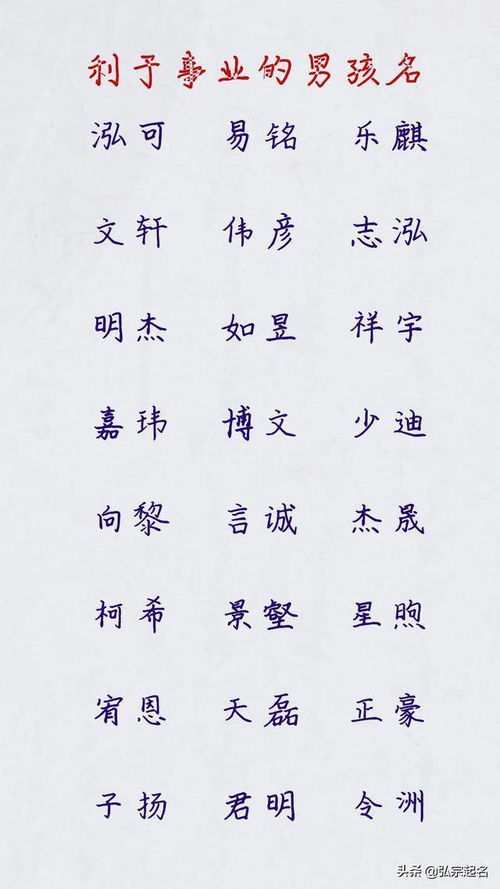 利于事业的男孩名
泓可 易铭 乐麒
文轩 伟彦 志泓
明杰 如昱 祥宇
嘉玮 博文 少迪
向黎 言诚 杰晟
柯希 景壑 星煦
宥恩 天磊 正豪
子扬 君明 令洲
头条@弘宗起名